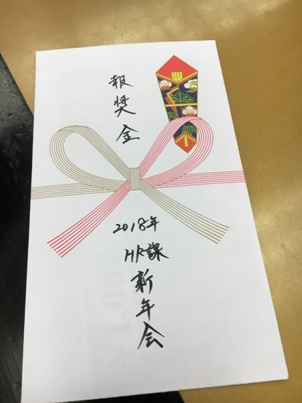 報奨金
2018年
HR課
新年会